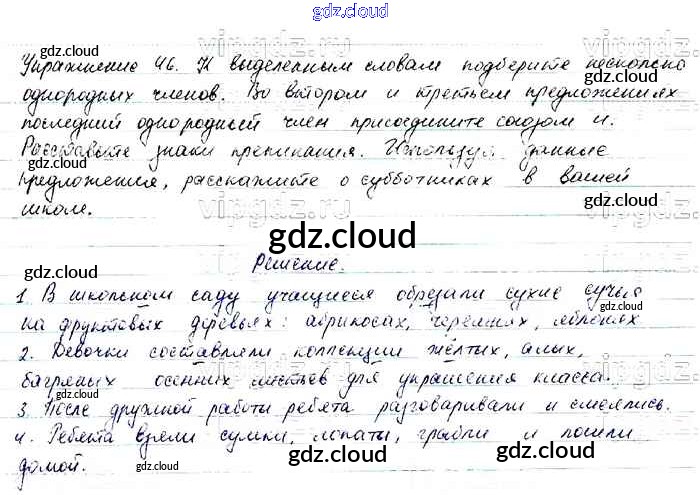 gdz.cloud
gdz.cloud gdz.cloud gdz.cloud
Упражнение 46. К выделенным словам подберите несколько
однородных членов. Во втором и третьем предложениях
последний однородный член присоедините союзом и.
Расставьте знаки препинания. Используя данные
предложения, расскажите о субботниках в вашей
школе.
gdz.cloud
Решение.
1. В школьном саду учащиеся обрезали сухие сучья
на фруктовых деревьях: абрикосах, черешнях, яблонях
2. Девочки составляли коллекции жёлтых, алых,
багряных осенних листьев для украшения класса.
3. После дружной работы ребята разговаривали и смеялись.
4. Ребята взяли сумки, лопаты, грабли и пошли
домой.
gdz.cloud gdz.cloud gdz.cloud